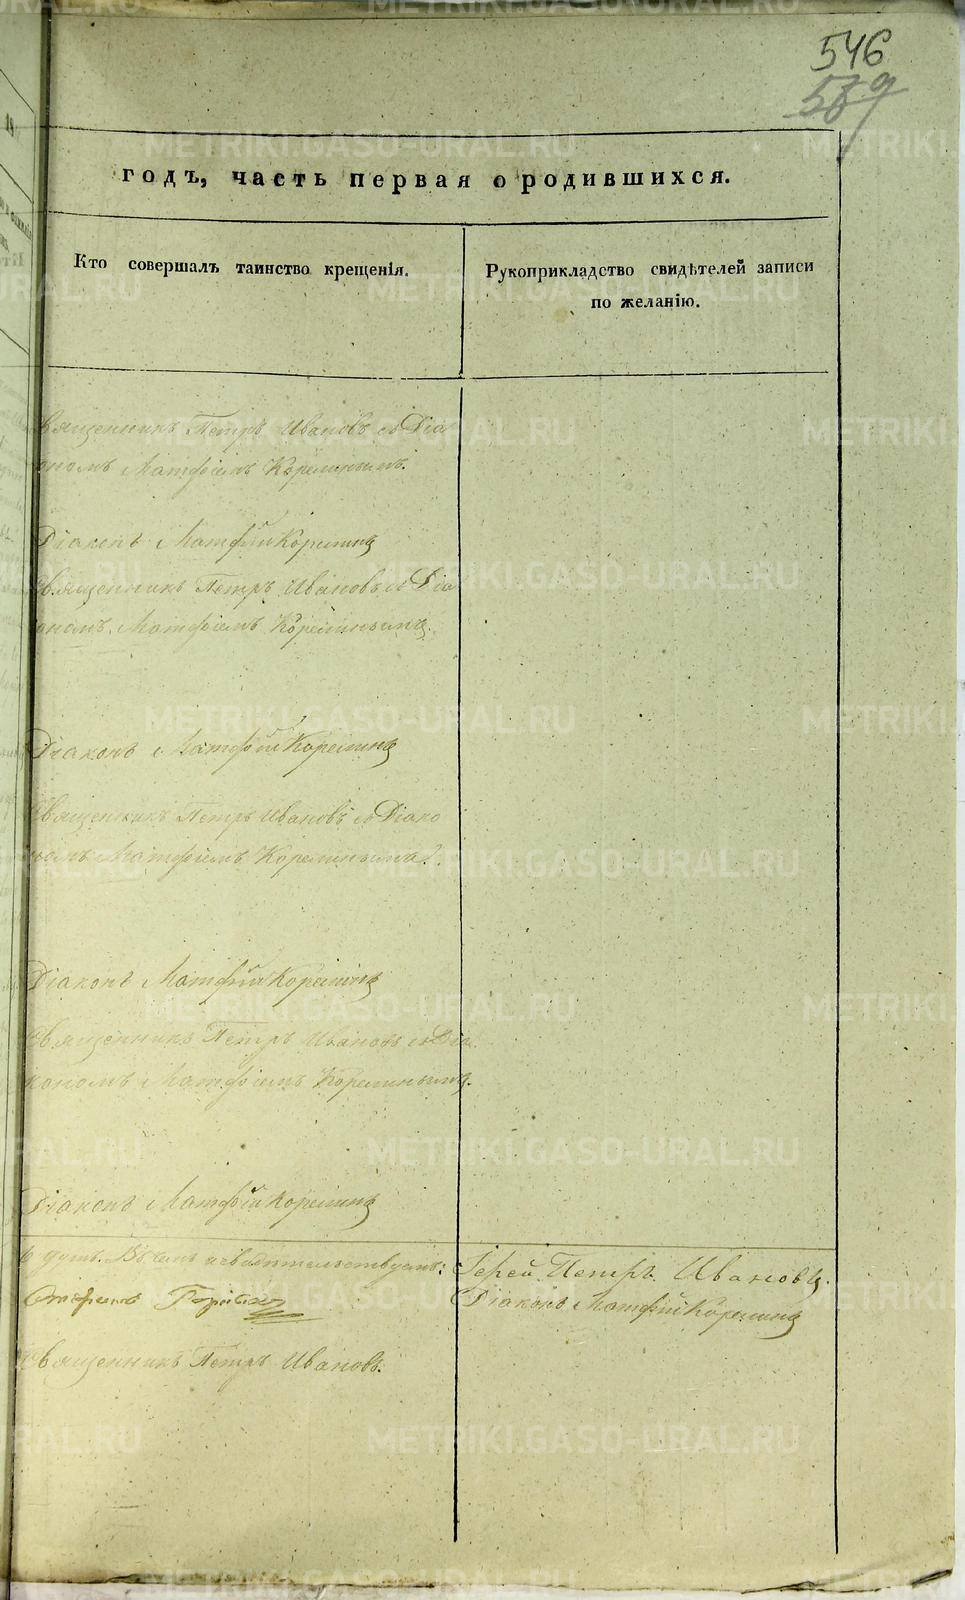 546
569
годъ, часть первая о родившихся.
Кто совершалъ таинство крещенія.
Рукоприкладство свидѣтелей записи
по желанію.
Священникъ Петръ Ивановъ съ Діа
кономъ Матфіемъ Корелинымъ.
Діаконъ Матфій Корелинъ
Священникъ Петръ Ивановъ съ Діа
кономъ Матфіемъ Корелинымъ.
Діаконъ Матфій Корелинъ
Священникъ Петръ Ивановъ съ Діако
номъ Матфіемъ Корелинымъ.
Діаконъ Матфій Корелинъ
Священникъ Петръ Ивановъ съ Діа
кономъ Матфіемъ Корелинымъ.
Діаконъ Матфій Корелинъ
душъ. Въ чемъ и свидѣтельствуемъ: Іерей Петръ Ивановъ.
Діаконъ Матфій Корелинъ
Священникъ Петръ Ивановъ.
METRIKI.GASO-URAL.RU